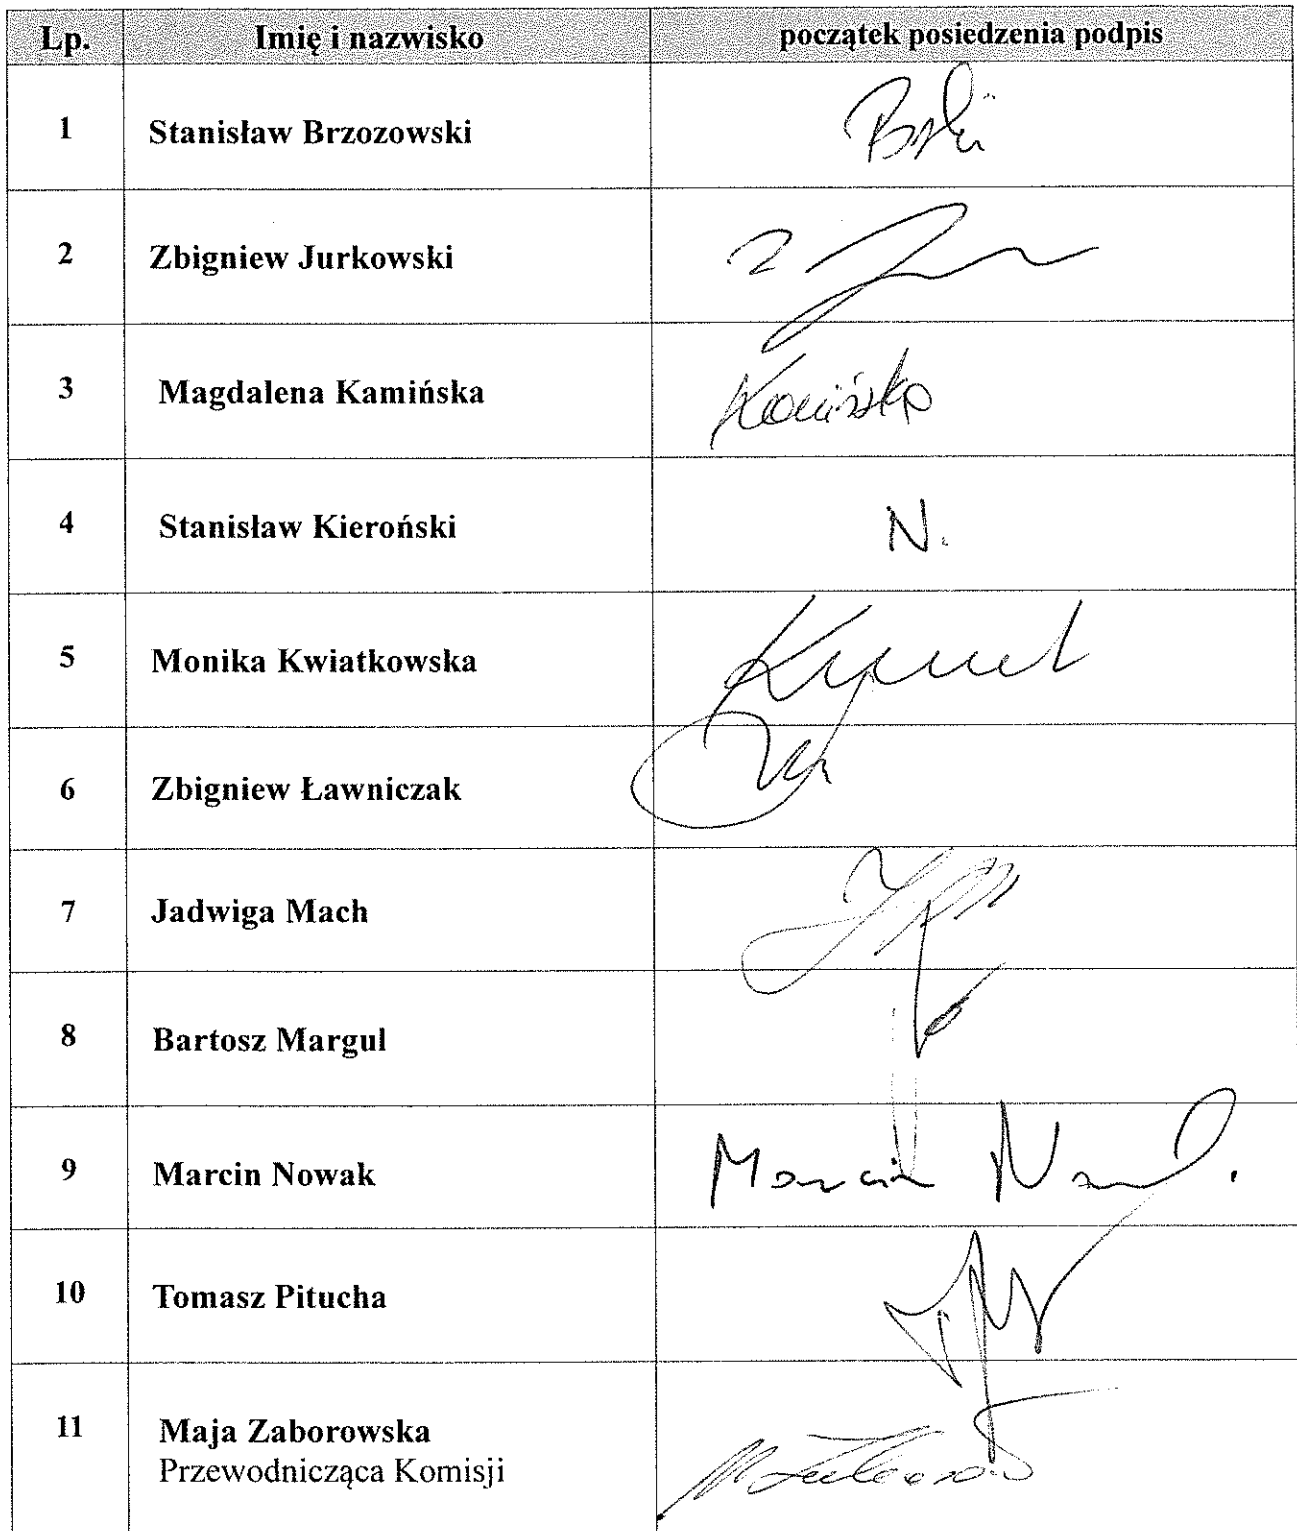 Lp. Imię i nazwisko początek posiedzenia podpis
1 Stanisław Brzozowski
2 Zbigniew Jurkowski
3 Magdalena Kamińska
4 Stanisław Kieroński N.
5 Monika Kwiatkowska
6 Zbigniew Ławniczak
7 Jadwiga Mach
8 Bartosz Margul
9 Marcin Nowak Marcin
10 Tomasz Pitucha
11 Maja Zaborowska
Przewodnicząca Komisji